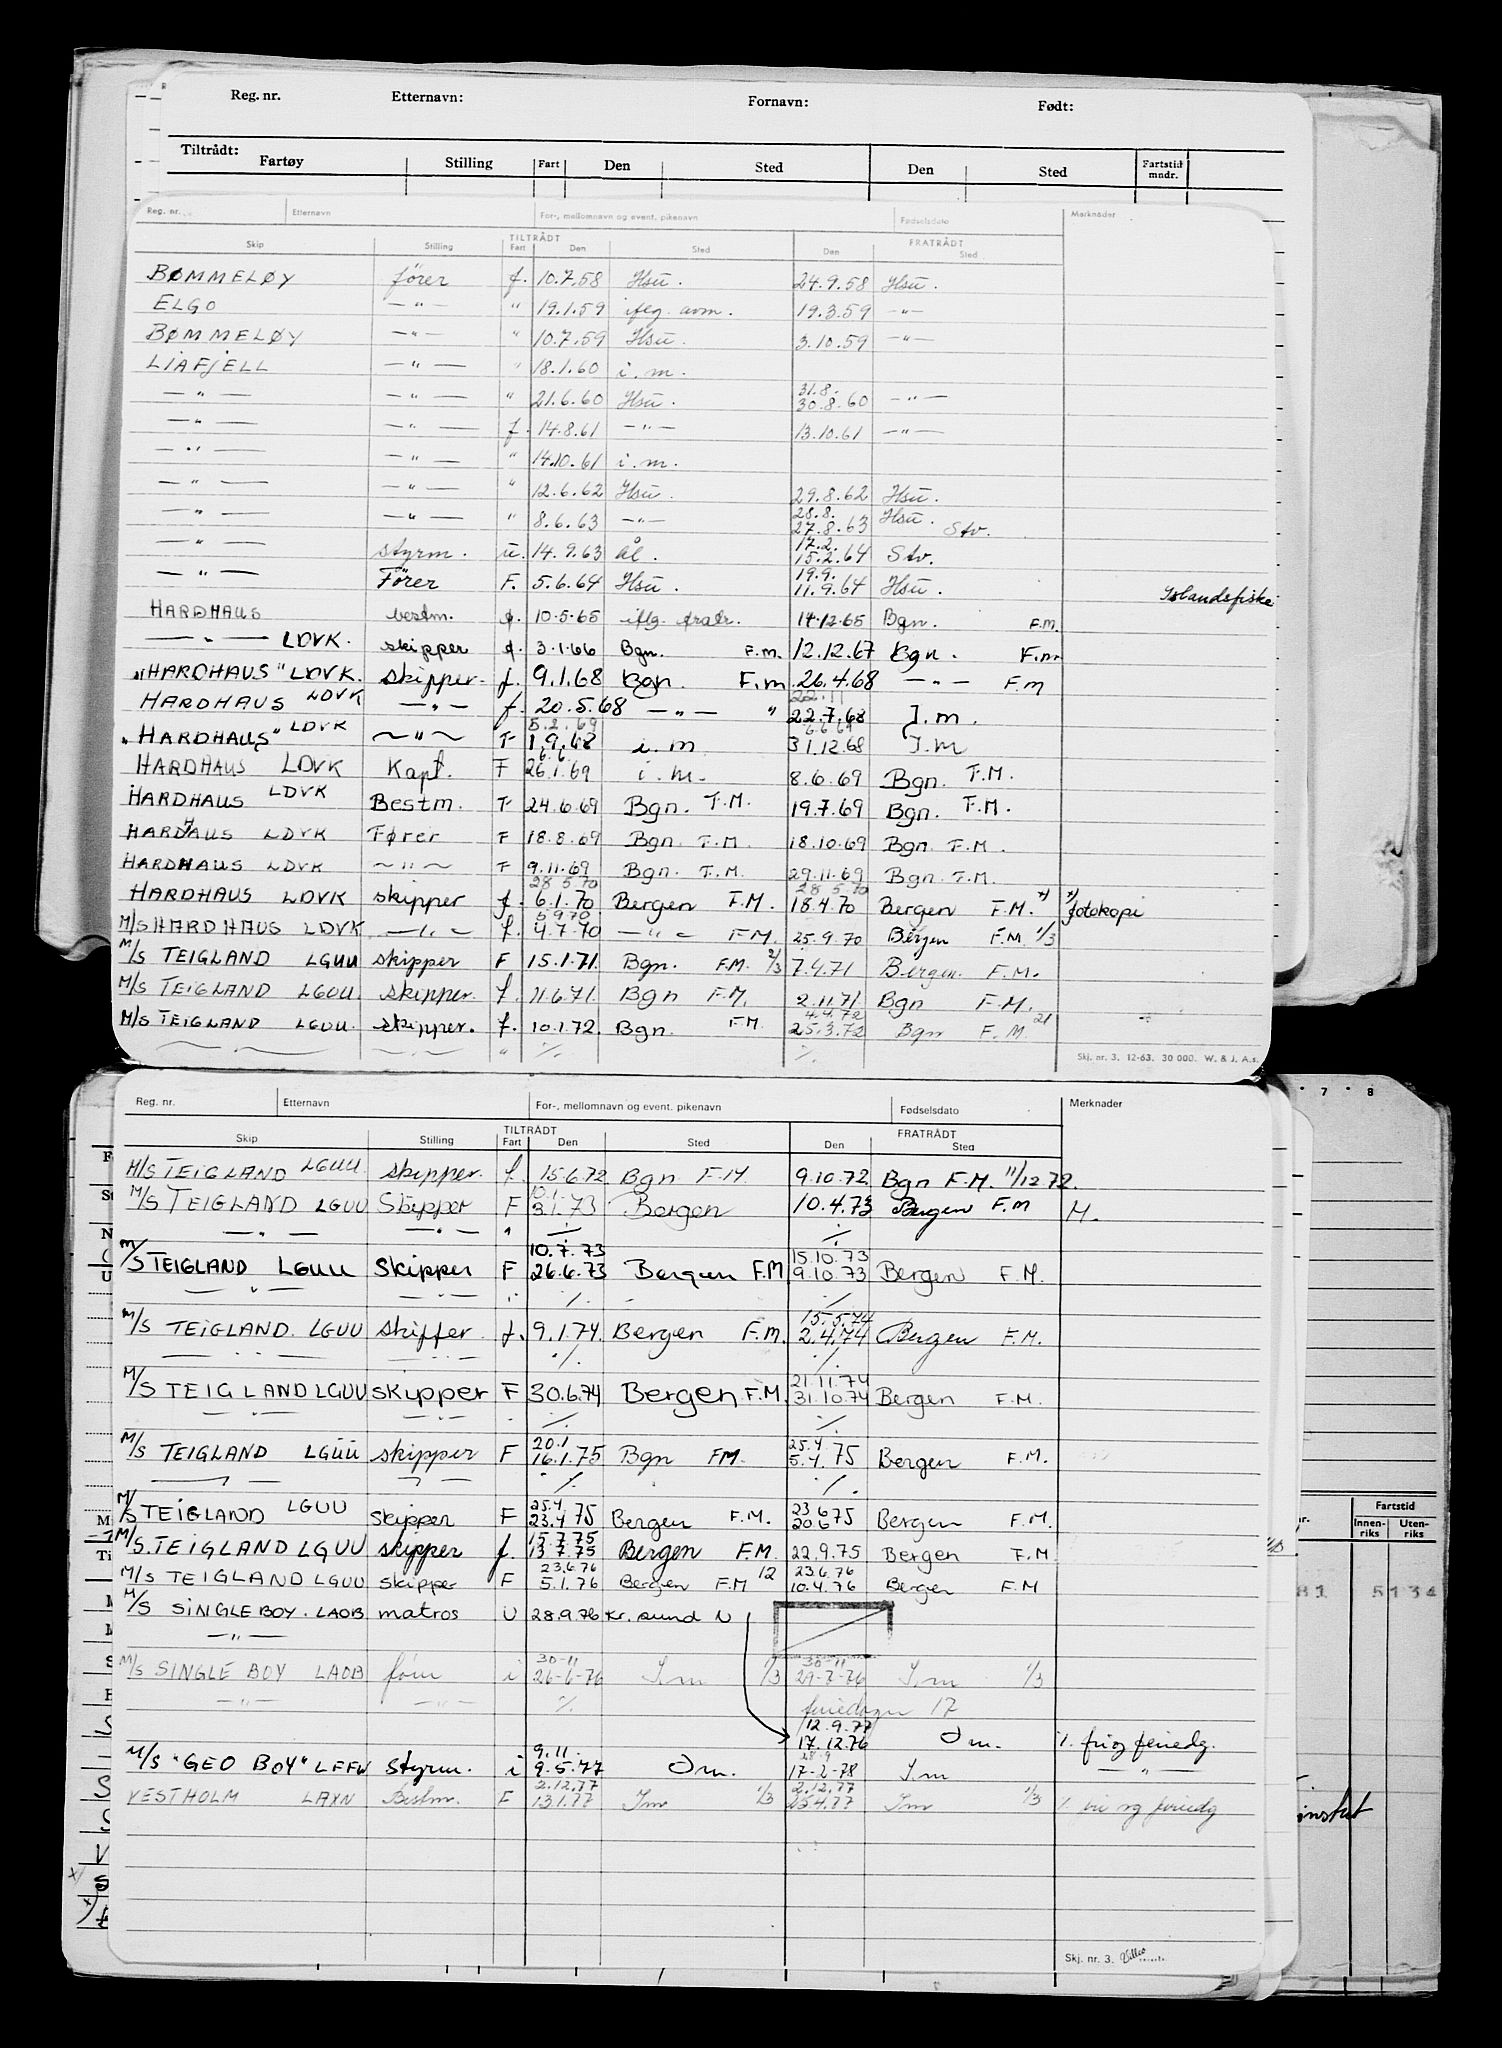 Reg. nr. Etternavn: Fornavn: Født:
Tiltrådt:
Fartøy Stilling Fart Den Sted Den Sted Fartstid mndr.
Reg. nr. Etternavn For-, mellomnavn og event. pikenavn Fødselsdato Merknader
TILTRÅDT FRATRÅDT
Skip Stilling Fart Den Sted Den Sted
BØMMELØY fører f. 10.7.58 Hsu. 24.9.58 Hsu.
ELGO —"— " 19.1.59 iflg. avm. 19.3.59 —"—
BØMMELØY —"— " 10.7.59 Hsu. 3.10.59 —"—
LIAFJELL —"— " 18.1.60 i.m.
31.8.
—"— —"— " 21.6.60 Hsu. 30.8.60 —"—
—"— —"— f. 14.8.61 —"— 13.10.61 —"—
—"— —"— " 14.10.61 i.m.
—"— —"— " 12.6.62 Hsu. 29.8.62 Hsu.
28.8.
—"— —"— " 8.6.63 —"— 27.8.63 Hsu. Stv.
17.2.
—"— styrm. u. 14.9.63 Ål. 15.2.64 Stv.
19.9.
—"— Fører F. 5.6.64 Hsu. 11.9.64 Hsu. Islandsfiske
HARDHAUS bestm. f. 10.5.65 iflg. fratr. 14.12.65 Bgn. F.M.
—"— LDVK. skipper f. 3.1.66 Bgn. F.M. 12.12.67 Bgn. F.m
"HARDHAUS" LDVK. skipper. f. 9.1.68 Bgn. F.m. 26.4.68 —"— F.M
22.11
HARDHAUS LDVK —"— f. 20.5.68 —"— " 22.7.68 I.m.
5.2.69 6.6.69
"HARDHAUS" LDVK ~"~ F 1.9.68 i.m 31.12.68 I.m
6.6.
HARDHAUS LDVK Kapt. F 26.1.69 i.m. 8.6.69 Bgn. F.M.
HARDHAUS LDVK Bestm. F 24.6.69 Bgn. F.M. 19.7.69 Bgn. F.M.
HARDHAUS LDVK Fører F 18.8.69 Bgn. F.M. 18.10.69 Bgn. F.M.
HARDHAUS LDVK ~"~ F 9.11.69 Bgn. F.M. 29.11.69 Bgn. F.M.
28 5 70 28 5 70
HARDHAUS LDVK skipper f. 6.1.70 Bergen F.M. 18.4.70 Bergen F.M. *) *) fotokopi
5 9 70
M/S HARDHAUS LDVK —"— f. 4.7.70 —"— F.M. 25.9.70 Bergen F.M. 1/3
M/S TEIGLAND LGUU skipper F 15.1.71. Bgn. F.M. 2/3 7.4.71 Bergen. F.M.
M/S TEIGLAND LGUU. skipper. f. 11.6.71. Bgn F.M. 2.11.71 Bgn F.M.
4.4.72
M/S TEIGLAND LGUU. skipper. f. 10.1.72. Bgn. F.M. 25.3.72 Bgn F.M. 21
—"— —"— " ·/. ·/.
Skj. nr. 3. 12-63. 30 000. W. & J. A.s.
Reg. nr. Etternavn For-, mellomnavn og event. pikenavn Fødselsdato Merknader
TILTRÅDT FRATRÅDT
Skip Stilling Fart Den Sted Den Sted
M/S TEIGLAND LGUU. skipper. f. 15.6.72 Bgn F.M 9.10.72 Bgn F.M. 11/12.72.
10.1
M/S TEIGLAND LGUU Skipper F 3.1.73 Bergen 10.4.73 Bergen F.M M.
—"— —"— " ·/. ·/.
10.7.73 15.10.73
M/S TEIGLAND LGUU Skipper F 26.6.73 Bergen F.M. 9.10.73 Bergen F.M.
—"— —"— " ·/. ·/.
15.5.74
M/S TEIGLAND. LGUU skipper. f. 9.1.74. Bergen F.M. 2.4.74 Bergen F.M.
—"— —"— ·/. ·/.
21.11.74
M/S TEIGLAND LGUU skipper F 30.6.74 Bergen F.M. 31.10.74 Bergen F.M.
—"— —"— ·/. ·/.
20.1 25.4.
M/S TEIGLAND LGUU skipper F 16.1.75 Bgn FM. 5.4.75 Bergen F.M.
—"— —"— ·/. ·/.
25.4 23 6
M/S TEIGLAND LGUU skipper F 23.4 75 Bergen F.M. 20 6 75 Bergen F.M.
15.7.75
M/S. TEIGLAND LGUU skipper f. 13.7.75 Bergen F.M. 22.9.75 Bergen F.M
23.6.76 23.6.76
M/S TEIGLAND LGUU skipper F 5.1.76 Bergen F.M 12 10.4.76 Bergen F.M
M/S SINGLE BOY. LAOB matros U 28.9.76 Kr. sund N
—"—
30-11 30-11
M/S SINGLE BOY LAOB i 26-6-76 I.m 1/3 29-7-76 I.m 1/3
—"— —"— ·/. feriedager 17
12.9.77
17.12.76 I m. ·/. fri og feriedg.
9.11. 28.9
M/S "GEO BOY" LFFW Styrm. i 9.5.77 I m. 17-2-78 I.m —"—
2.12.77 2.12.77
VESTHOLM LAXN Bestm. F 13.1.77 I m 1/3 25.4.77 I m 1/3 ·/. fri og feriedg
Skj. nr. 3.
7 8
Fartstid
Innen-riks Uten-riks
81 5134